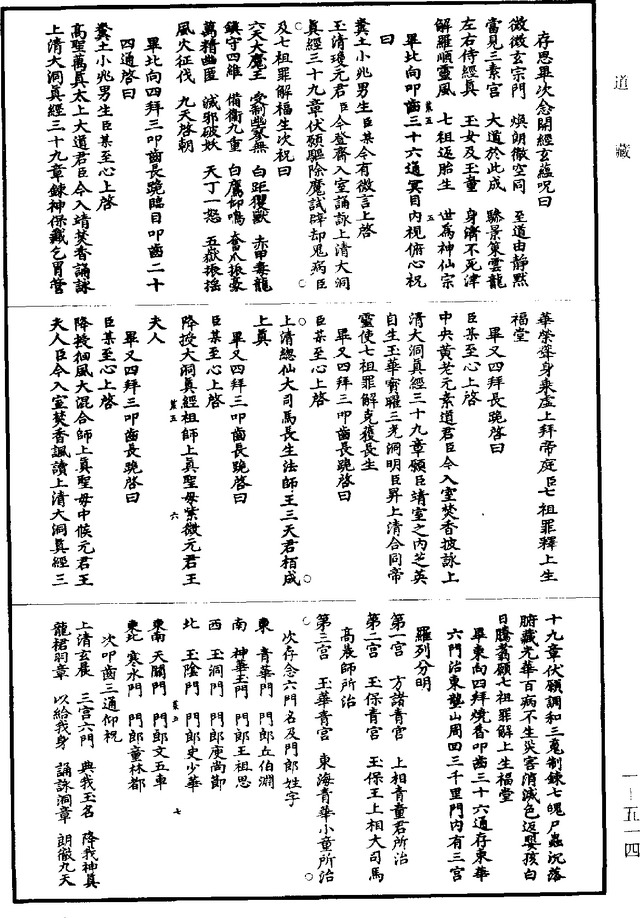 道藏
存思畢次念開經玄蘊呪曰
微微玄宗門　煥朗徹空同　至道由靜默
當見三素宮　大道於此成　驂景策雲龍
左右侍經真　玉女及玉童　身濟不死津
解羅順靈風　七祖返胎生　世為神仙宗
畢北向叩齒三十六通冥目內視俯心祝
曰
糞土小兆男生臣某今有微言上啓
玉清瓊元君臣今登齋入室誦詠上清大洞
真經三十九章伏願驅除魔試辟却鬼病臣
及七祖罪解福生次祝曰
六天大魔王　受制酆豪無　白距玃獸　赤甲毒龍
鎮守四維　備衛九重　白鷹仰鳴　奮爪振豪
萬精幽匿　滅邪破妖　天丁一怒　五嶽振搖
風火征伐　九天啓朝
畢北向四拜三叩齒長跪臨目叩齒二十
四通啓曰
糞土小兆男生臣某至心上啓
高聖萬真太上大道君臣今入靖焚香誦詠
上清大洞真經三十九章鍊神保藏乞胃管
華榮聳身乘虛上拜帝庭臣七祖罪釋上生
福堂
畢又四拜長跪啓曰
臣某至心上啓
中央黃老元素道君臣今入室焚香披詠上
清大洞真經三十九章願臣靖室之內芝英
自生玉華寶曜三光洞明臣昇上清合同帝
靈使七祖罪解克獲長生
畢又四拜三叩齒長跪啓曰
臣某至心上啓
上清總仙大司馬長生法師王三天君栢成
上真
畢又四拜三叩齒長跪啓曰
臣某至心上啓
降授大洞真經祖師上真聖母紫微元君王
夫人
畢又四拜三叩齒長跪啓曰
臣某至心上啓
降授徊風大混合師上真聖母中候元君王
夫人臣今入室焚香諷讀上清大洞真經三
十九章伏願調和三魂制鍊七魄尸蟲沉落
腑藏光華百病不生災害消滅色返嬰孩白
日騰翥願七祖罪解上生福堂
畢東向四拜燒香叩齒三十六通存東華
六門治東鍪山周四三千里門內有三宮
羅列分明
第一宮　方諸青宮　上相青童君所治
第二宮　玉保青宮　玉保王上相大司馬
高晨師所治
第三宮　玉華青宮　東海青華小童所治
次存念六門名及門郎姓字
東　青華門　門郎丘伯淵
南　神華玉門　門郎王祖思
西　玉洞門　門郎庚尚鄭
北　玉陰門　門郎史少華
東南　天關門　門郎文五車
東北　寒水門　門郎童林都
次叩齒三通仰祝
上清玄晨　三宮六門　典我玉名　降我神真
龍裙羽章　以給我身　誦詠洞章　朗徹九天
一—五一四